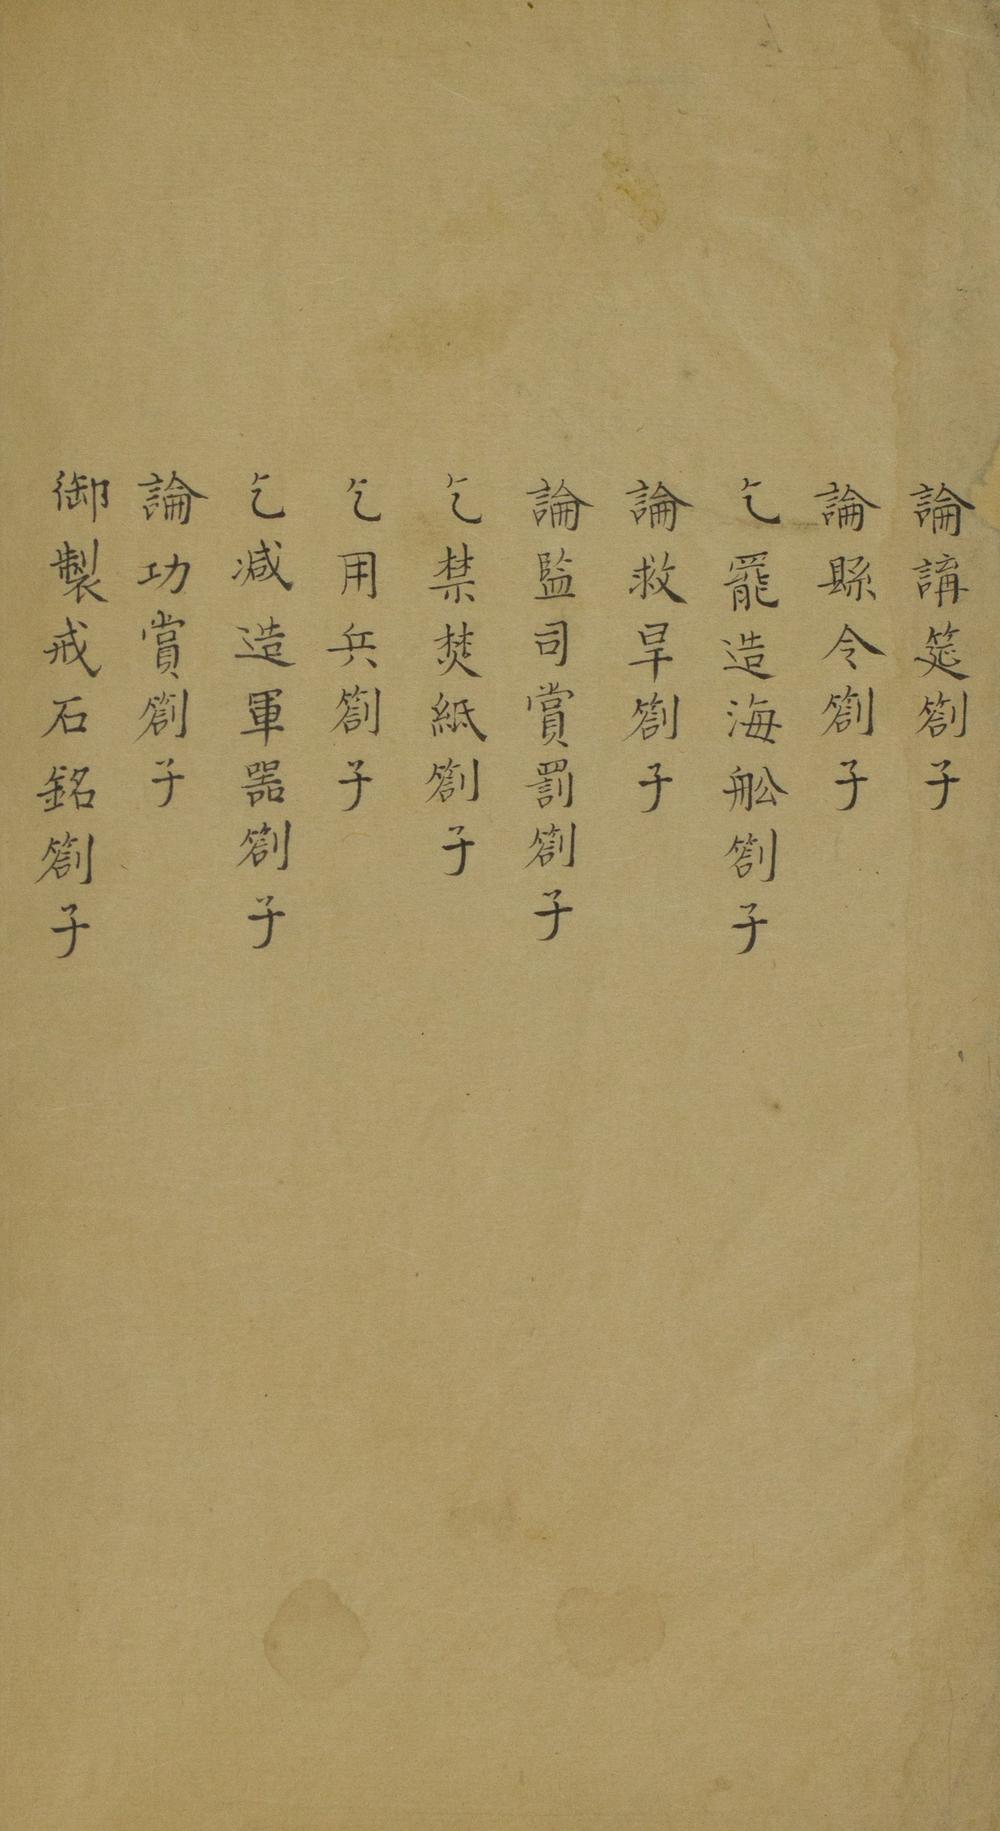 論講筵劄子
論縣令劄子
乞罷造海舩劄子
論救旱劄子
論監司賞罰劄子
乞禁焚紙劄子
乞用兵劄子
乞减造軍器劄子
論功賞劄子
御製戒石銘劄子